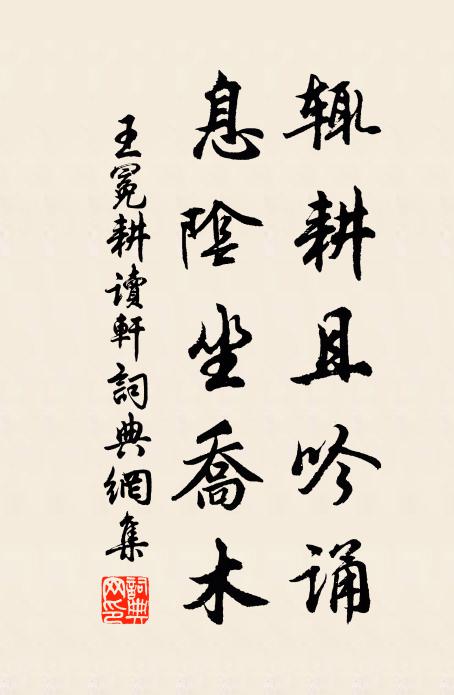 辄耕且吟诵
息陰坐喬木
王冕耕讀軒詞典網集
詞典网印